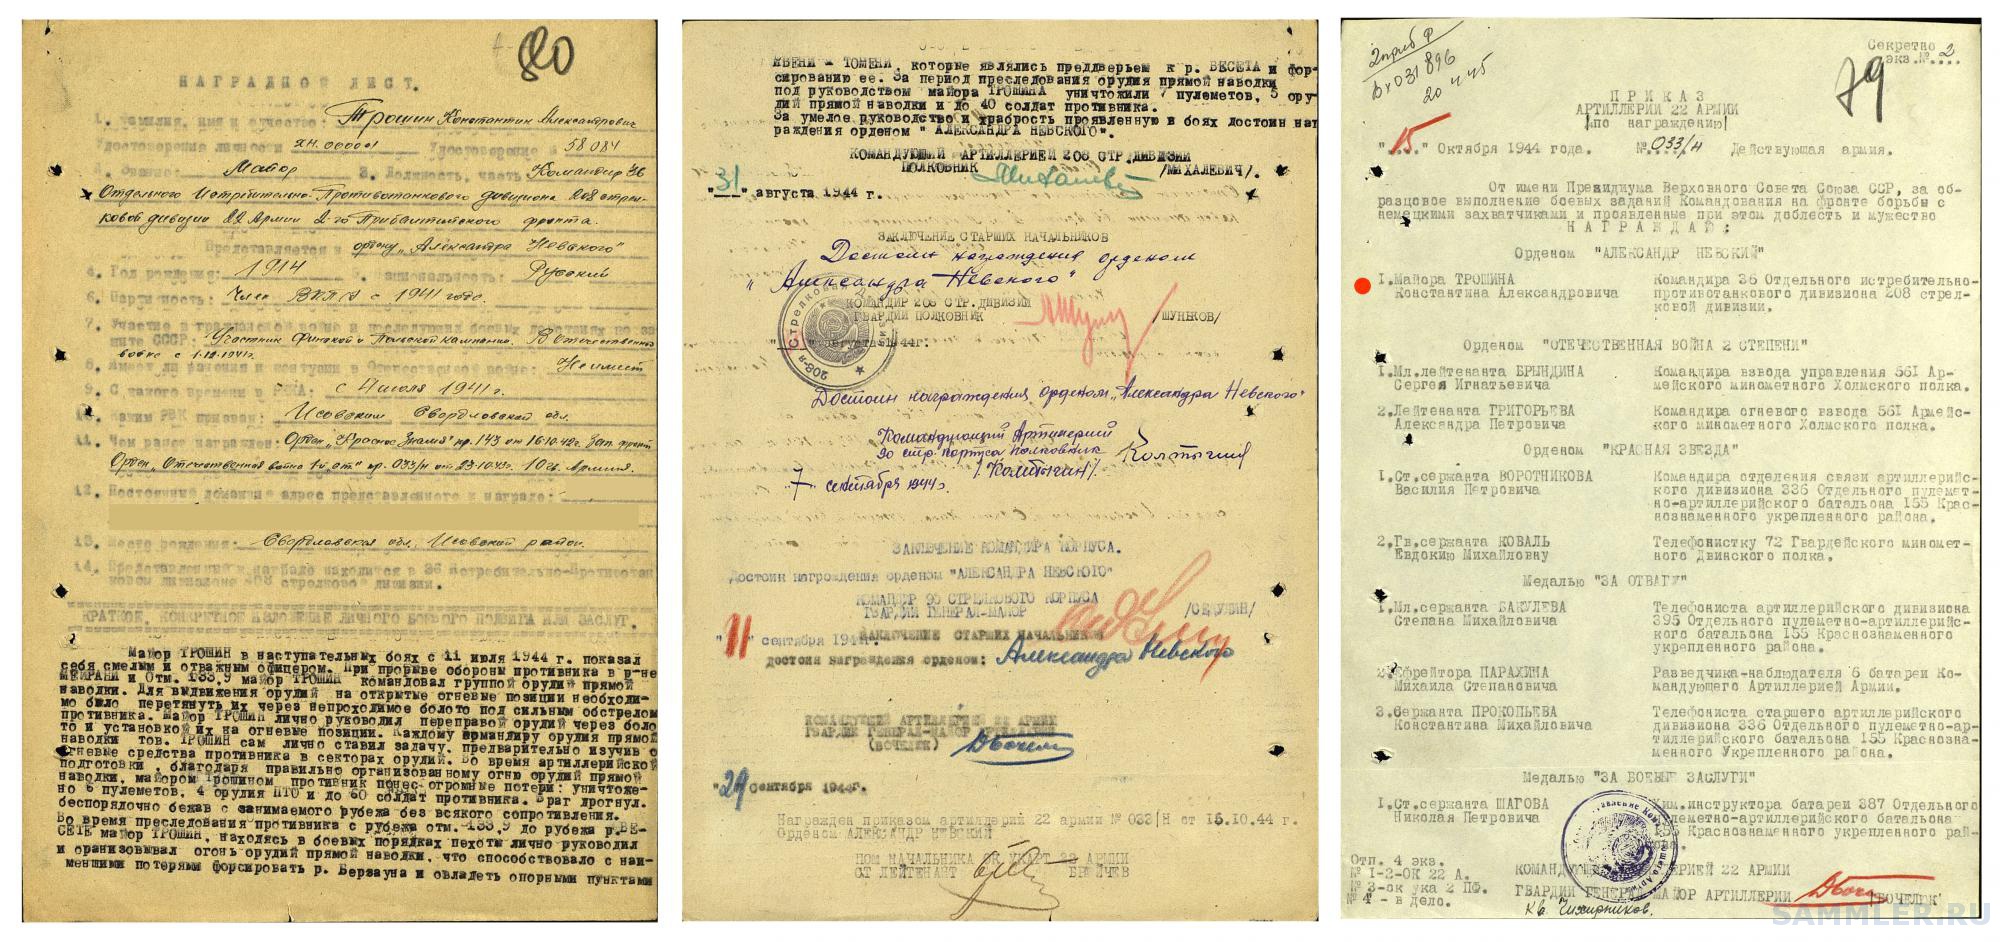 80
НАГРАДНОЙ ЛИСТ.
1. Фамилия, имя и отчество: Трошин Константин Александрович
Удостоверения личности ХН.00001 Удостоверение № 58084
2. Звание: Майор 3. Должность, часть Командир 36
Отдельного Истребительно-Противотанкового дивизиона 208 стрел-
ковой дивизии 22 Армии 2-го Прибалтийского фронта.
Представляется к ордену „Александра Невского"
4. Год рождения: 1914 5. Национальность: Русский
6. Партийность: Член ВКП/б с 1941 года.
7. Участие в гражданской войне и последующих боевых действиях по за-
щите СССР: Участник Финской и Польской кампании. В Отечественной
войне с 1.10.1941г.
8. Имеет ли ранения и контузии в Отечественной войне: Не имеет
9. С какого времени в РККА: с 4 июля 1941 г.
10. Каким РВК призван: Исовским Свердловской обл.
11. Чем ранее награжден: Орден „Красное Знамя" пр. 143 от 16.10.42г. Зап. фронт
Орден „Отечественная война 1й ст" пр. 033/н от 23.10.43г. 10 гв. Армия.
12. Постоянный домашний адрес представленного к награде:
13. Место рождения: Свердловская обл., Исовский район.
14. Представленный к награде находится в 36 Истребительно-Противотан
ковом дивизионе 208 стрелковой дивизии.
КРАТКОЕ, КОНКРЕТНОЕ ИЗЛОЖЕНИЕ ЛИЧНОГО БОЕВОГО ПОДВИГА ИЛИ ЗАСЛУГ.
Майор ТРОШИН в наступательных боях с 11 июля 1944 г. показал
себя смелым и отважным офицером. При прорыве обороны противника в р-не
МЕЙРАНИ и Отм. 133,9 майор ТРОШИН командовал группой орудий прямой
наводки. Для выдвижения орудий на открытые огневые позиции необходи-
мо было перетянуть их через непроходимое болото под сильным обстрелом
противника. Майор ТРОШИН лично руководил переправой орудий через боло
то и установкой их на огневые позиции. Каждому командиру орудия прямой
наводки тов. ТРОШИН сам лично ставил задачу, предварительно изучив о
огневые средства противника в секторах орудий. Во время артиллерийской
подготовки, благодаря правильно организованному огню орудий прямой
наводки, майором Трошином противник понес огромные потери: уничтоже-
но 6 пулеметов, 4 орудия ПТО и до 60 солдат противника. Враг дрогнул.
беспорядочно бежав с занимаемого рубежа без всякого сопротивления.
Во время преследования противника с рубежа отм. 133,9 до рубежа р. ВЕ-
СЕТЕ майор ТРОШИН, находясь в боевых порядках пехоты лично руководил
и оранизовывал огонь орудий прямой наводки, что способствовало с наи-
меньшими потерями форсировать р. Берзауна и овладеть опорными пунктами
ЯВЕНИ - ТОМЕНИ, которые являлись преддверьем к р. ВЕСЕТА и фор-
сированию ее. За период преследования орудия прямой наводки
под руководством майора ТРОШИНА уничтожили 7 пулеметов, 5 ору-
дий прямой наводки и до 40 солдат противника.
За умелое руководство и храбрость проявленную в боях достоин наг
раждения орденом " АЛЕКСАНДРА НЕВСКОГО".
КОМАНДУЮЩИЙ АРТИЛЛЕРИЕЙ 208 СТР.ДИВИЗИИ
ПОЛКОВНИК /МИХАЛЕВИЧ/.
"31" августа 1944 г.
ЗАКЛЮЧЕНИЕ СТАРШИХ НАЧАЛЬНИКОВ
Достоин награждения орденом
„Александра Невского"
КОМАНДИР 208 СТР. ДИВИЗИИ
ГВАРДИИ ПОЛКОВНИК /ШУНЬКОВ/
августа 1944г.
Достоин награждения орденом „Александра Невского"
Командующий Артилерией
90 стр. корпуса Полковник
/Колтыгин/.
„7" сентября 1944г.
ЗАКЛЮЧЕНИЕ КОМАНДИРА КОРПУСА.
Достоин награждения орденом "АЛЕКСАНДРА НЕВСКОГО"
КОМАНДИР 90 СТРЕЛКОВОГО КОРПУСА
ГВАРДИИ ГЕНЕРАЛ-МАЙОР
"11" сентября 1944г.
ЗАКЛЮЧЕНИЕ СТАРШИХ НАЧАЛЬНИКОВ
достоин награждения орденом: Александра Невского
КОМАНДУЮЩИЙ АРТИЛЛЕРИЕЙ 22 АРМИИ
ГВАРДИИ ГЕНЕРАЛ-МАЙОР АРТИЛЛЕРИИ
(БОЧЕЛЮК)
"29" Сентября 1944г.
Награжден приказом артиллерий 22 армии № 033/Н от 15.10.44 г.
Орденом АЛЕКСАНДР НЕВСКИЙ
ПОМ НАЧАЛЬНИКА ОК УКАРТ 22 АРМИИ
СТ ЛЕЙТЕНАНТ
Вх 031896
20 4 45
Секретно
экз.№ 2
79
ПРИКАЗ
АРТИЛЛЕРИИ 22 АРМИИ
/по награждению/
"15" Октября 1944 года. № 033/Н Действующая армия.
От имени Президиума Верховного Совета Союза ССР, за об-
разцовое выполнение боевых заданий Командования на фронте борьбы с
немецкими захватчиками и проявленные при этом доблесть и мужество
НАГРАЖДАЮ:
Орденом "АЛЕКСАНДР НЕВСКИЙ"
1.Майора ТРОШИНА Командира 36 Отдельного истребительно-
Константина Александровича противотанкового дивизиона 208 стрел-
ковой дивизии.
Орденом "ОТЕЧЕСТВЕННАЯ ВОЙНА 2 СТЕПЕНИ"
1.Мл.лейтенанта БРЫНДИНА Командира взвода управления 561 Ар-
Сергея Игнатьевича мейского минометного Холмского полка.
2.Лейтенанта ГРИГОРЬЕВА Командира огневого взвода 561 Армейс-
Александра Петровича кого минометного Холмского полка.
Орденом "КРАСНАЯ ЗВЕЗДА"
1.Ст.сержанта ВОРОТНИКОВА Командира отделения связи артиллерийс-
Василия Петровича кого дивизиона 336 Отдельного пулемет-
но-артиллерийского батальона 155 Крас-
нознаменного укрепленного района.
2.Гв.сержанта КОВАЛЬ Телефонистку 72 Гвардейского миномет-
Евдокию Михайловну ного Двинского полка.
Медалью "ЗА ОТВАГУ"
1.Мл.сержанта БАКУЛЕВА Телефониста артиллерийского дивизиона
Степана Михайловича 395 Отдельного пулеметно-артиллерийс-
кого батальона 155 Краснознаменного
укрепленного района.
2.Ефрейтора ПАРАХИНА Разведчика-наблюдателя 6 батареи Ко-
Михаила Степановича мандующего Артиллерией Армии.
3.Сержанта ПРОКОПЬЕВА Телефониста старшего артиллерийского
Константина Михайловича дивизиона 336 Отдельного пулеметно-ар-
тиллерийского батальона 155 Краснозна-
менного Укрепленного района.
Медалью "ЗА БОЕВЫЕ ЗАСЛУГИ"
1.Ст.сержанта ШАГОВА Хим.инструктора батареи 387 Отдельного
Николая Петровича пулеметно-артиллерийского батальона
155 Краснознаменного укрепленного рай-
она.
Отп. 4 экз.
№ 1-2-ОК 22 А.
№ 3-ок ука 2 ПФ.
№ 4 - в дело.
КОМАНДУЮЩИЙ АРТИЛЛЕРИЕЙ 22 АРМИИ
ГВАРДИИ ГЕНЕРАЛ МАЙОР АРТИЛЛЕРИИ /БОЧЕЛЮК/
SAMMLER.RU